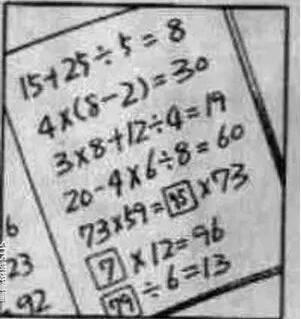 15+25÷5=8
4×(8-2)=30
3×8+12÷4=19
20-4×6÷8=60
73×59=95×73
7×12=96
79÷6=13
6
23
.92